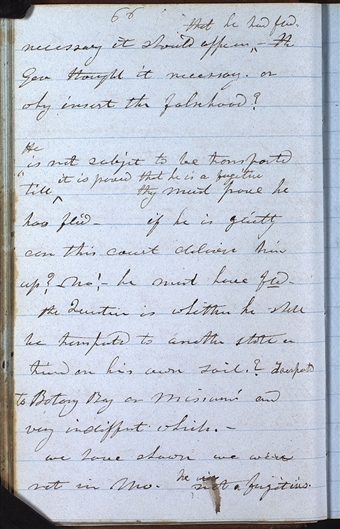 66
that he had fled.
necessary it should appear, – the
Gov. thought it necessary. or
why insert the falsehood?
He
"is not subject to be transported
it is proved that he is a fugitive
till ^ they must prove he
has fled – if he is guilty
can this court deliver him
up? – No! – he must have fled –
the Question is whether he shall
be transported to another state or
tried on his own soil? Transported
to Botany Bay or Missouri and
very indifferent which. –
we have shown we were
not in Mo. he was
not a fugitive.